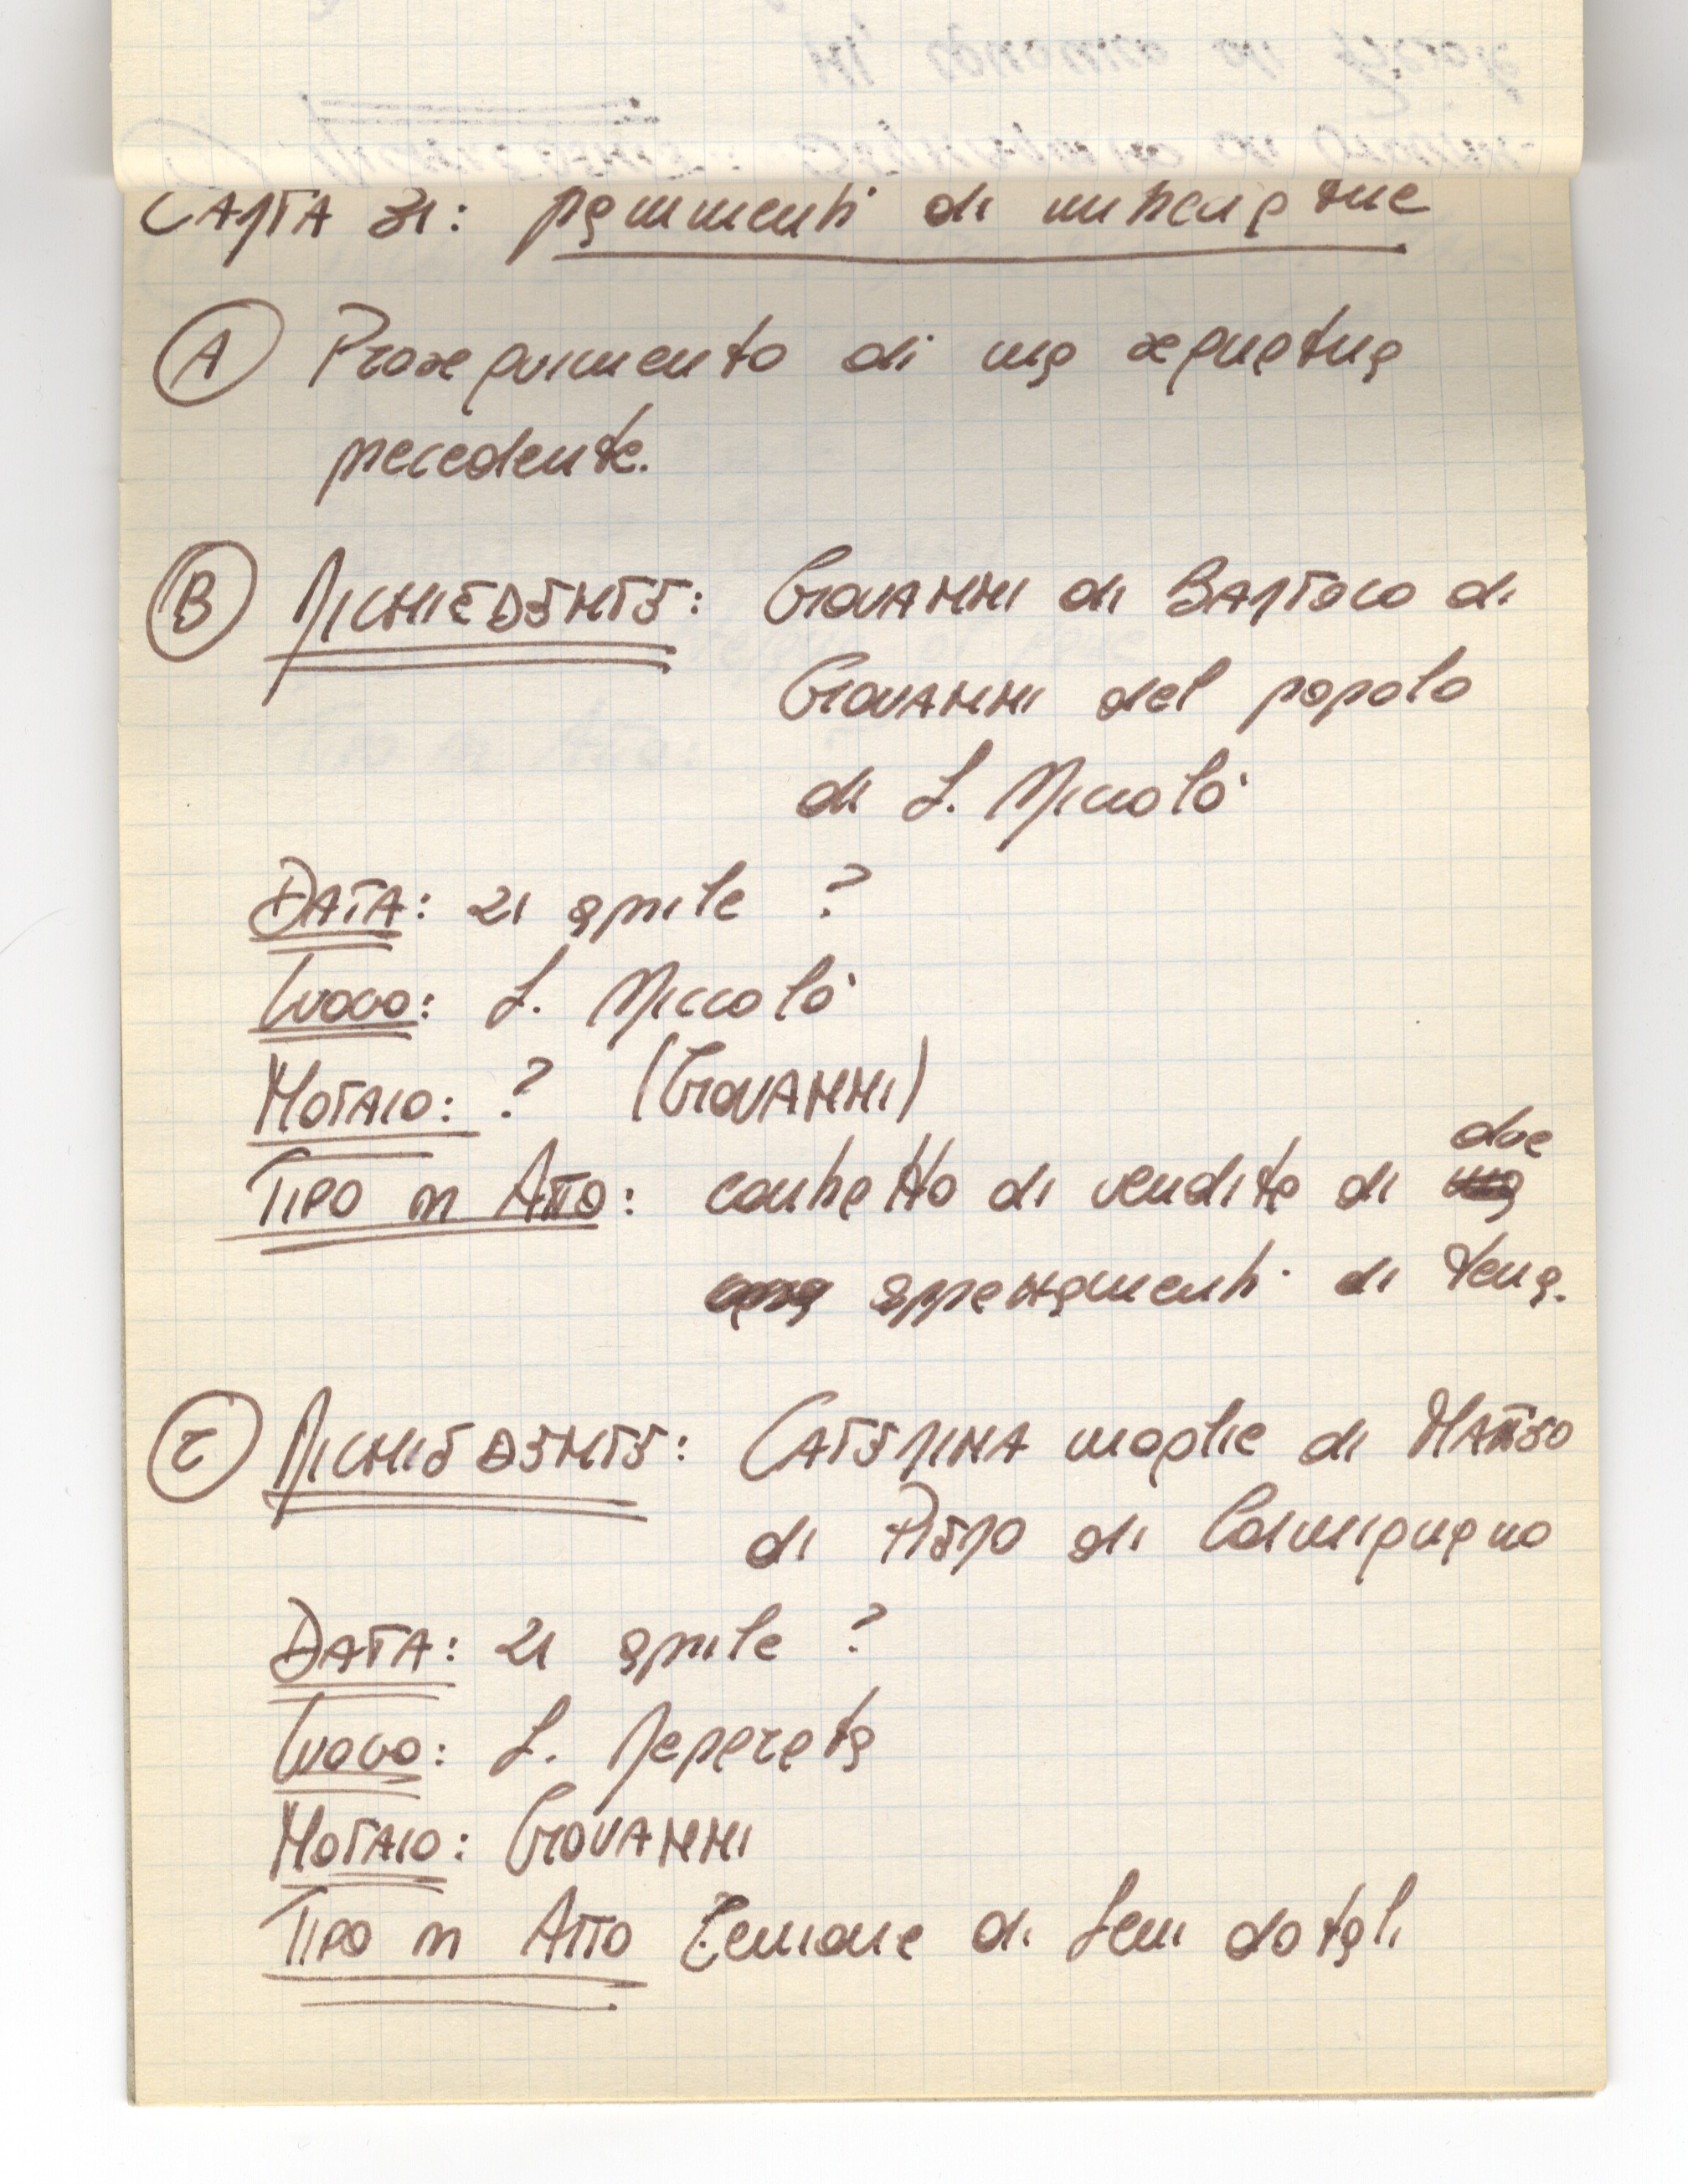 CARTA 31: frammenti di
A Proseguimento di una segnatura
precedente.
B RICHIEDENTE: GIOVANNI di BARTOLO di
GIOVANNI del popolo
di S. Niccolò
DATA: 21 aprile ?
LUOGO: S. Niccolò
NOTAIO: ? (GIOVANNI)
TIPO DI ATTO: contratto di vendita di due
appezzamenti di terra.
C RICHIEDENTE: CATERINA moglie di MATTEO
di PIERO di Carmignano
DATA: 21 aprile ?
LUOGO: S. Reparata
NOTAIO: GIOVANNI
TIPO DI ATTO di beni dotali